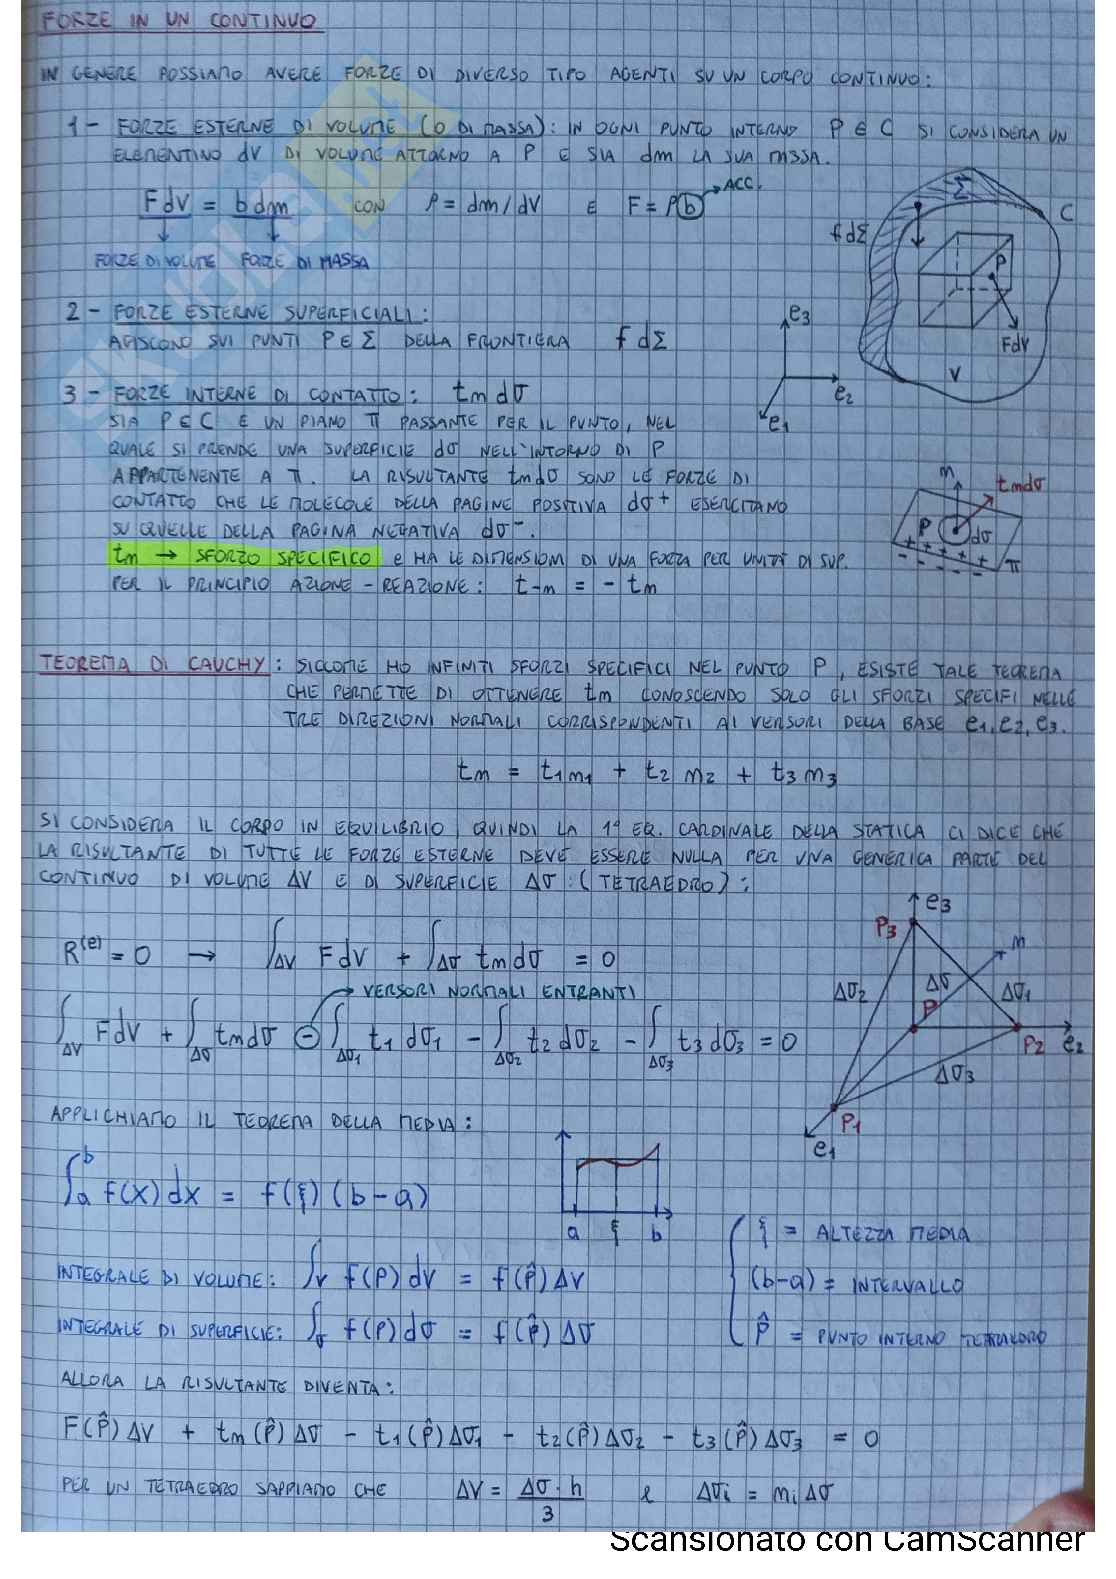 FORZE IN UN CONTINUO
IN GENERE POSSIAMO AVERE FORZE DI DIVERSO TIPO AGENTI SU UN CORPO CONTINUO:
1 - FORZE ESTERNE DI VOLUME (O DI MASSA): IN OGNI PUNTO INTERNO P ∈ C SI CONSIDERA UN
ELEMENTINO dV DI VOLUME ATTORNO A P E SIA dm LA SUA MASSA.
FdV = b dm CON ρ = dm/dV E F = ρb → ACC.
FORZE DI VOLUME FORZE DI MASSA
Σ
C
f dΣ
P
FdV
V
e3
e2
e1
2 - FORZE ESTERNE SUPERFICIALI:
AGISCONO SUI PUNTI P ∈ Σ DELLA FRONTIERA f dΣ
3 - FORZE INTERNE DI CONTATTO: tn dσ
SIA P ∈ C E UN PIANO π PASSANTE PER IL PUNTO, NEL
QUALE SI PRENDE UNA SUPERFICIE dσ NELL'INTORNO DI P
APPARTENENTE A π. LA RISULTANTE tndσ SONO LE FORZE DI
CONTATTO CHE LE MOLECOLE DELLA PAGINE POSITIVA dσ+ ESERCITANO
SU QUELLE DELLA PAGINA NEGATIVA dσ-.
tn → SFORZO SPECIFICO E HA LE DIMENSIONI DI UNA FORZA PER UNITÀ DI SUP.
PER IL PRINCIPIO AZIONE - REAZIONE: t-n = - tn
n
tndσ
P
dσ
+ + + + +
- - - - -
π
TEOREMA DI CAUCHY: SICCOME HO INFINITI SFORZI SPECIFICI NEL PUNTO P, ESISTE TALE TEOREMA
CHE PERMETTE DI OTTENERE tn CONOSCENDO SOLO GLI SFORZI SPECIFI NELLE
TRE DIREZIONI NORMALI CORRISPONDENTI AI VERSORI DELLA BASE e1, e2, e3.
tn = t1n1 + t2 n2 + t3 n3
SI CONSIDERA IL CORPO IN EQUILIBRIO, QUINDI LA 1ª EQ. CARDINALE DELLA STATICA CI DICE CHE
LA RISULTANTE DI TUTTE LE FORZE ESTERNE DEVE ESSERE NULLA PER UNA GENERICA PARTE DEL
CONTINUO DI VOLUME ΔV E DI SUPERFICIE Δσ: (TETRAEDRO):
R(e) = 0 → ∫ΔV F dV + ∫Δσ tndσ = 0
→ VERSORI NORMALI ENTRANTI
∫ΔV FdV + ∫Δσ tndσ - ∫Δσ1 t1 dσ1 - ∫Δσ2 t2 dσ2 - ∫Δσ3 t3 dσ3 = 0
e3
P3
n
Δσ2
Δσ
Δσ1
P
P2
e2
Δσ3
P1
e1
APPLICHIAMO IL TEOREMA DELLA MEDIA:
∫a^b f(x) dx = f(ξ) (b-a)
a ξ b
ξ = ALTEZZA MEDIA
(b-a) = INTERVALLO
P̂ = PUNTO INTERNO TETRAEDRO
INTEGRALE DI VOLUME: ∫V f(P) dV = f(P̂) ΔV
INTEGRALE DI SUPERFICIE: ∫σ f(P) dσ = f(P̂) Δσ
ALLORA LA RISULTANTE DIVENTA:
F(P̂) ΔV + tn(P̂) Δσ - t1(P̂) Δσ1 - t2(P̂) Δσ2 - t3(P̂) Δσ3 = 0
PER UN TETRAEDRO SAPPIAMO CHE ΔV = Δσ · h / 3 e Δσi = ni Δσ
Scansionato con CamScanner